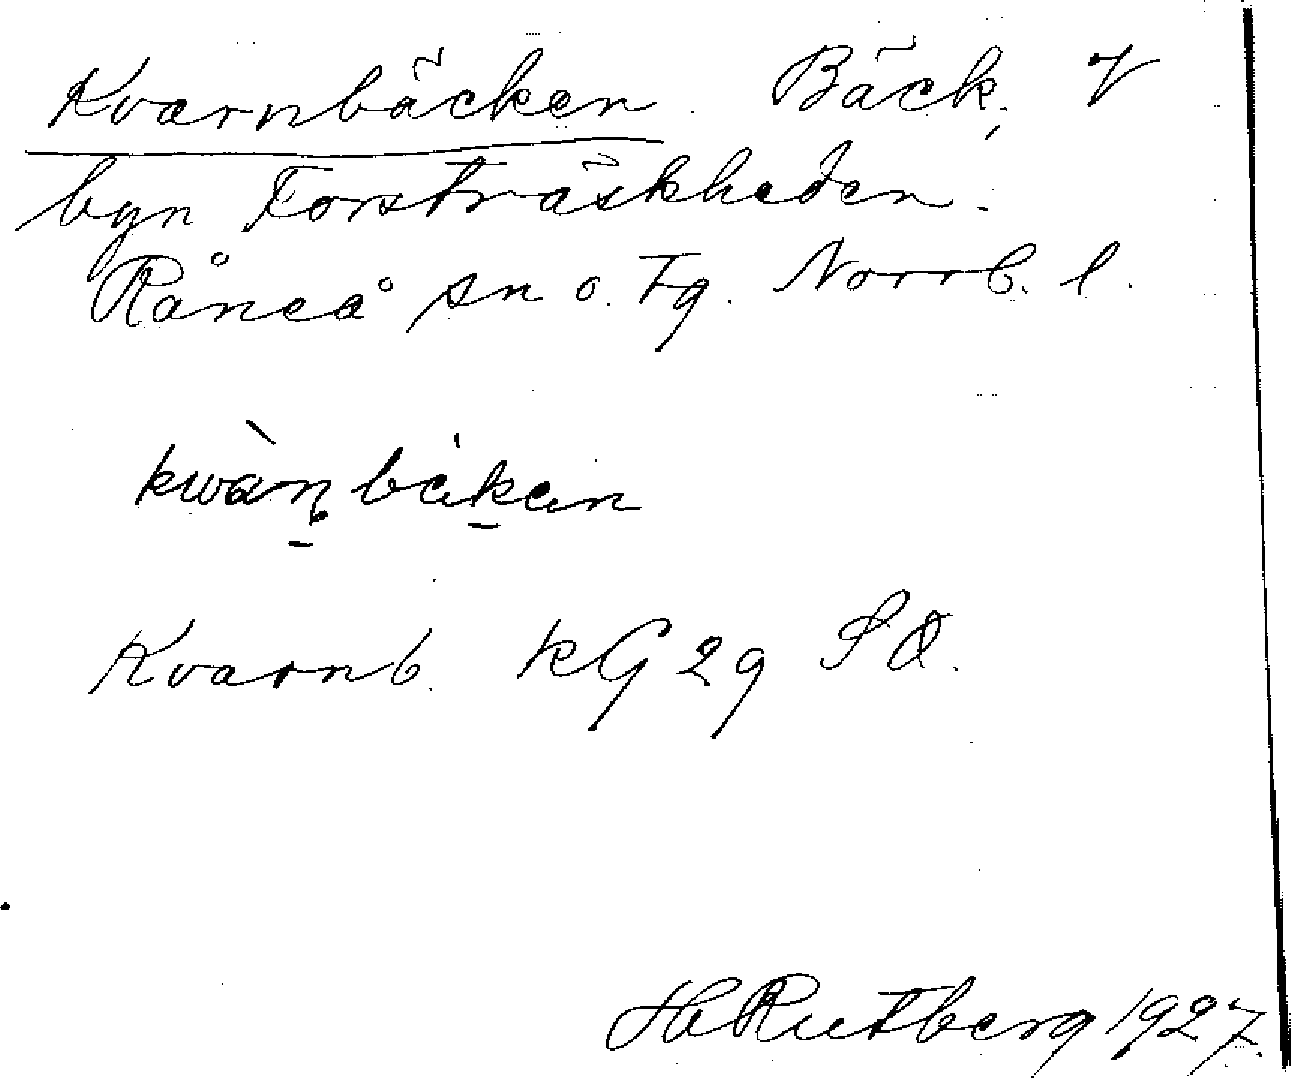 Kvarnbäcken. Bäck, V
byn Forsträskheden.
Råneå sn o. Tg. Norrb. l.
kwàn bäkan
Kvarnb. KG 29 SO.
H Rutberg 1927.